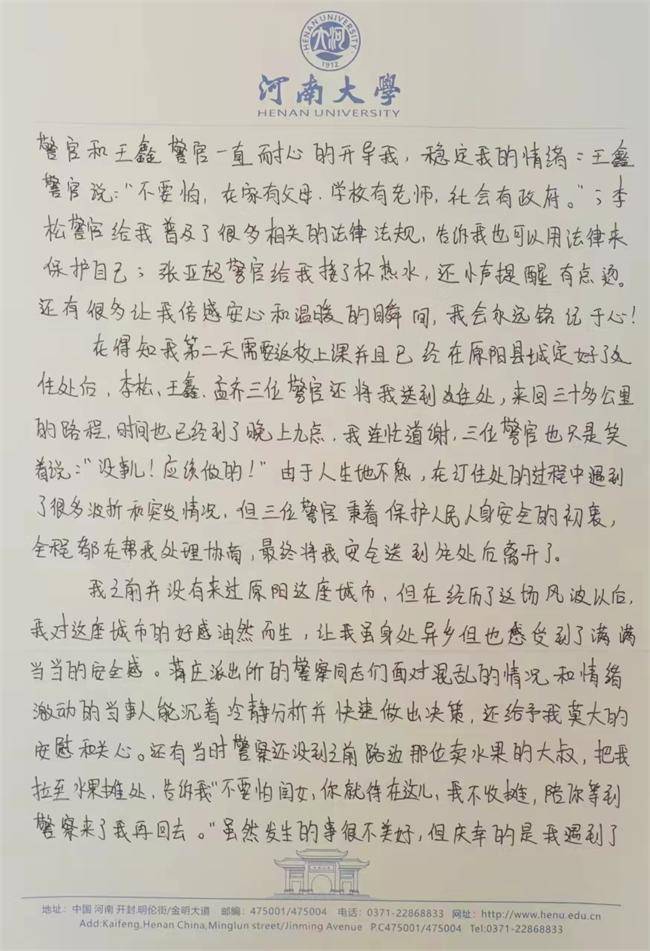 HENAN UNIVERSITY
大河
1912
河南大学
HENAN UNIVERSITY
警官和王鑫警官一直耐心的开导我，稳定我的情绪：王鑫
警官说：“不要怕，在家有父母、学校有老师，社会有政府。”；李
松警官给我普及了很多相关的法律法规，告诉我也可以用法律来
保护自己；张亚超警官给我接了杯热水，还小声提醒有点烫。
还有很多让我倍感安心和温暖的瞬间，我会永远铭记于心！
在得知我第二天需要返校上课并且已经在原阳县城定好了
住处后，李松、王鑫、孟乔三位警官还将我送到住处，来回三十多公里
的路程，时间也已经到了晚上九点，我连忙道谢，三位警官也只是笑
着说：“没事儿！应该做的！”由于人生地不熟，在订住处的过程中遇到
了很多波折和突发情况，但三位警官秉着保护人民人身安全的初衷，
全程都在帮我处理协商，最终将我安全送到住处后离开了。
我之前并没有来过原阳这座城市，但在经历了这场风波以后，
我对这座城市的好感油然而生，让我虽身处异乡但也感受到了满满
当当的安全感。蒋庄派出所的警察同志们面对混乱的情况和情绪
激动的当事人能沉着冷静分析并快速做出决策，还给予我莫大的
安慰和关心。还有当时警察还没到之前路边那位卖水果的大叔，把我
拉至水果摊处，告诉我“不要怕闺女，你就待在这儿，我不收摊，陪你等到
警察来了我再回去。”虽然发生的事很不美好，但庆幸的是我遇到了
地址：中国 河南 开封.明伦街/金明大道 邮编：475001/475004 电话：0371-22868833 网址：http://www.henu.edu.cn
Add:Kaifeng.Henan China,Minglun street/Jinming Avenue P.C475001/475004 Tel:0371-22868833